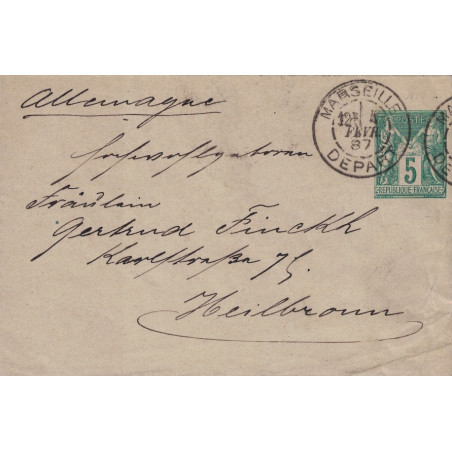 Allemagne
MARSEILLE
FEVR
87
DEPART
POSTE
5
REPUBLIQUE FRANÇAISE
Hochwohlgeboren
Fräulein
Gertrud Finckh
Karlstraße 75
Heilbronn